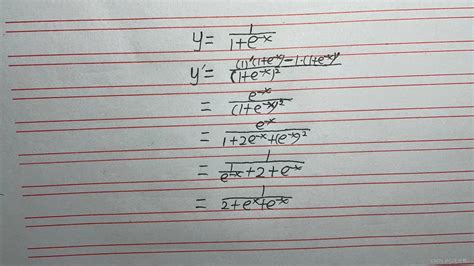 y = 1/(1+e^-x)
y' = ((1)'(1+e^-x) - 1·(1+e^-x)')/(1+e^-x)^2
= e^-x/(1+e^-x)^2
= e^-x/(1+2e^-x+(e^-x)^2)
= 1/(1/e^-x+2+e^-x)
= 1/(2+e^x+e^-x)